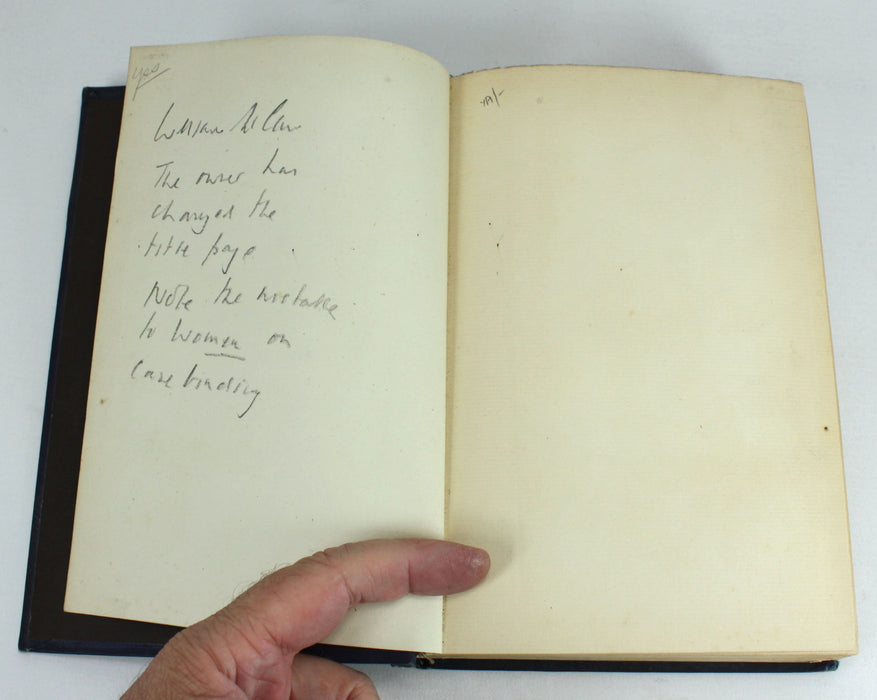 yes
William
The owner has
changed the
title page
Note the mistake
to women on
Case binding